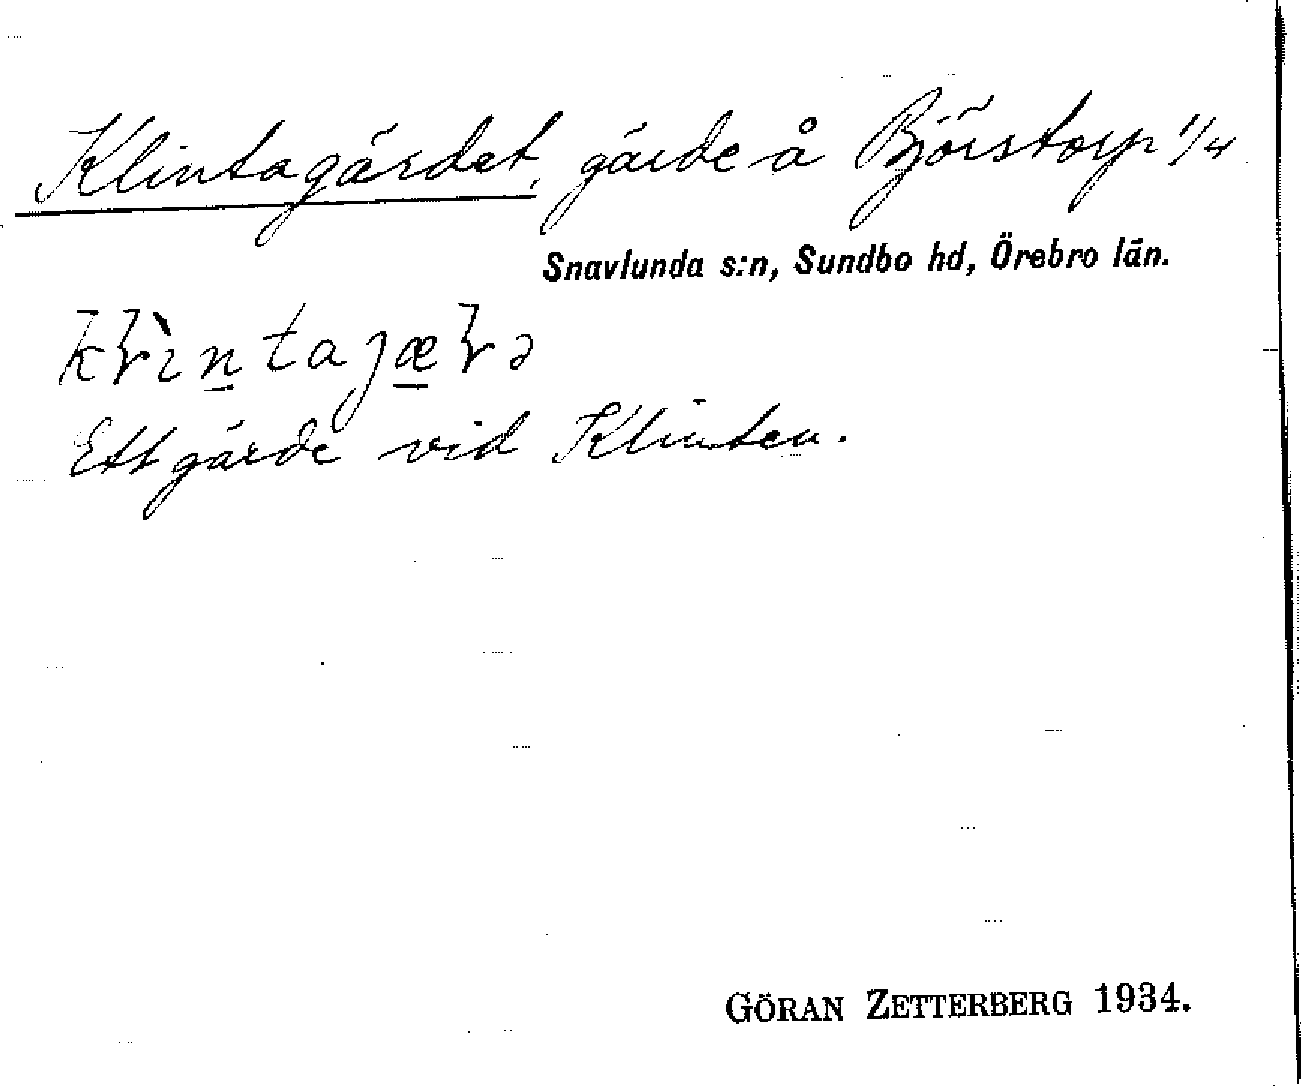 Klintagärdet, gärde å Björstorp 1/4
Snavlunda s:n, Sundbo hd, Örebro län.
Ett gärde vid Klinten.
GÖRAN ZETTERBERG 1934.